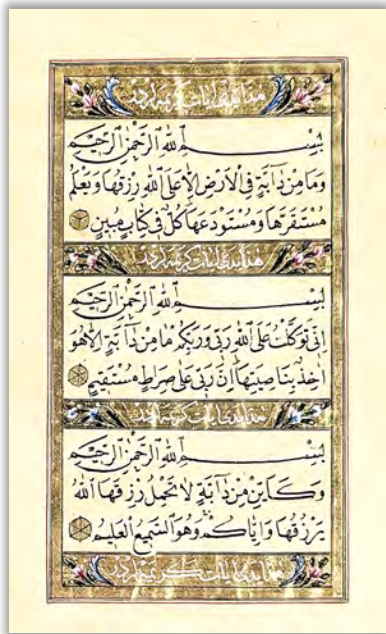 بِسْمِ اللهِ الرَّحْمٰنِ الرَّحِيْمِ
وَمَا مِنْ دَٓابَّةٍ فِي الْاَرْضِ اِلَّا عَلَى اللهِ رِزْقُهَا وَيَعْلَمُ
مُسْتَقَرَّهَا وَمُسْتَوْدَعَهَا كُلٌّ فِي كِتَابٍ مُبِينٍ
بِسْمِ اللهِ الرَّحْمٰنِ الرَّحِيْمِ
اِنِّي تَوَكَّلْتُ عَلَى اللهِ رَبِّي وَرَبِّكُمْ مَا مِنْ دَٓابَّةٍ اِلَّا هُوَ
اٰخِذٌ بِنَاصِيَتِهَا اِنَّ رَبِّي عَلَى صِرَاطٍ مُسْتَقِيمٍ
بِسْمِ اللهِ الرَّحْمٰنِ الرَّحِيْمِ
وَكَاَيِّنْ مِنْ دَٓابَّةٍ لَا تَحْمِلُ رِزْقَهَا اَللهُ
يَرْزُقُهَا وَاِيَّاكُمْ وَهُوَ السَّمِيعُ الْعَلِيمُ